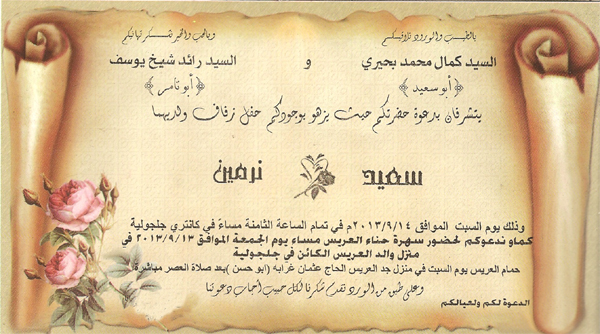 بالطيب والورود نلاقيكم
وبالحب والخير نشكر تهانيكم
السيد كمال محمد بحيري
و
السيد رائد شيخ يوسف
﴿أبو سعيد﴾
﴿أبو تامر﴾
يتشرفان بدعوة حضرتكم حيث يزهو بوجودكم حفل زفاف ولديهما
سعيد
نرمين
وذلك يوم السبت الموافق ٢٠١٣/٩/١٤م في تمام الساعة الثامنة مساءً في كانتري جلجولية
كما وندعوكم لحضور سهرة حناء العريس مساء يوم الجمعة الموافق ٢٠١٣/٩/١٣ في
منزل والد العريس الكائن في جلجولية
حمام العريس يوم السبت في منزل جد العريس الحاج عثمان غرابه (ابو حسن )بعد صلاة العصر مباشرة
وعلى طبق من الورد نقدم شكرنا لكل حبيب أجاب دعوتنا
الدعوة لكم ولعيالكم